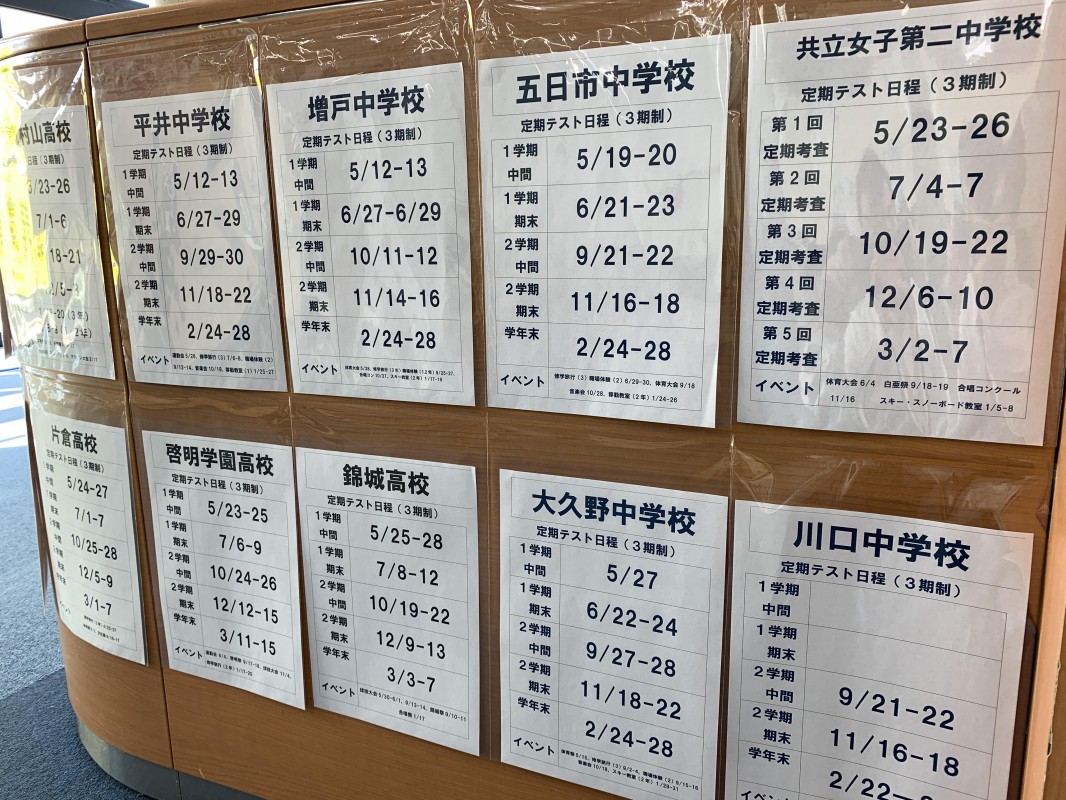 村山高校
日程（3期制）
5/23-26
7/1-6
18-21
平井中学校
定期テスト日程（3期制）
1学期
中間
5/12-13
1学期
期末
6/27-29
2学期
中間
9/29-30
2学期
期末
11/18-22
学年末
2/24-28
イベント
増戸中学校
定期テスト日程（3期制）
1学期
中間
5/12-13
1学期
期末
6/27-6/29
2学期
中間
10/11-12
2学期
期末
11/14-16
学年末
2/24-28
イベント
五日市中学校
定期テスト日程（3期制）
1学期
中間
5/19-20
1学期
期末
6/21-23
2学期
中間
9/21-22
2学期
期末
11/16-18
学年末
2/24-28
イベント
修学旅行（3）職場体験（2）6/29-30、体育大会 9/16
音楽会 10/28、移動教室（2年）1/24-26
共立女子第二中学校
定期テスト日程（3期制）
第1回
定期考査
5/23-26
第2回
定期考査
7/4-7
第3回
定期考査
10/19-22
第4回
定期考査
12/6-10
第5回
定期考査
3/2-7
イベント
体育大会 6/4 白亜祭 9/18-19 合唱コンクール
11/16 スキー・スノーボード教室 1/5-8
片倉高校
定期テスト日程（3期制）
1学期
5/24-27
7/1-7
10/25-28
12/5-9
3/1-7
啓明学園高校
定期テスト日程（3期制）
1学期
中間
5/23-25
1学期
期末
7/6-9
2学期
中間
10/24-26
2学期
期末
12/12-15
学年末
3/11-15
イベント
錦城高校
定期テスト日程（3期制）
1学期
中間
5/25-28
1学期
期末
7/8-12
2学期
中間
10/19-22
2学期
期末
12/9-13
学年末
3/3-7
イベント
大久野中学校
定期テスト日程（3期制）
1学期
中間
5/27
1学期
期末
6/22-24
2学期
中間
9/27-28
2学期
期末
11/18-22
学年末
2/24-28
イベント
川口中学校
定期テスト日程（3期制）
1学期
中間
1学期
期末
2学期
中間
9/21-22
2学期
期末
11/16-18
学年末
2/22-
イベント